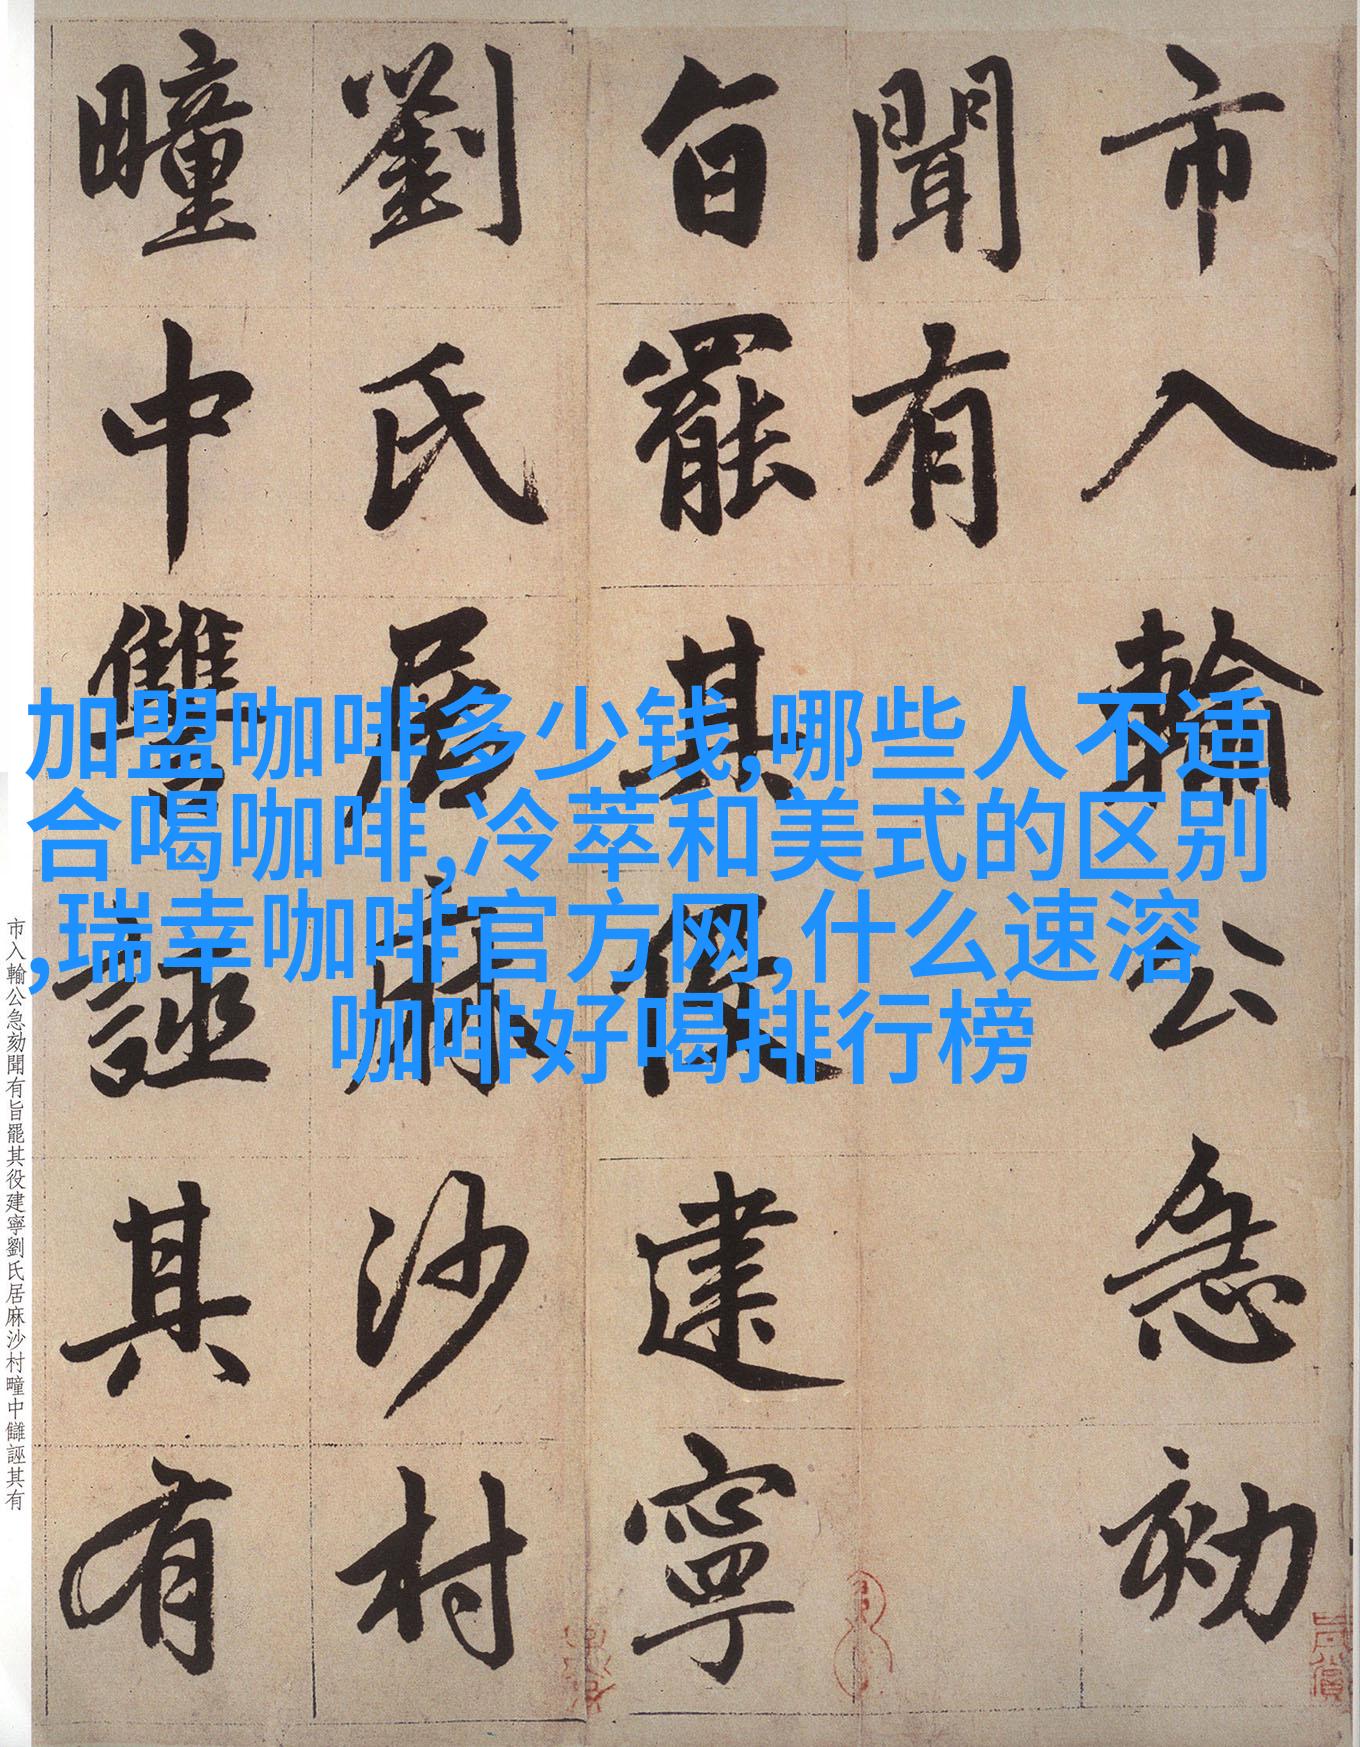 市入輸公急劾
聞有
旨罷其役建寧
劉氏居麻沙村
疃中讎誣其有
加盟咖啡多少钱,哪些人不适
合喝咖啡,冷萃和美式的区别
,瑞幸咖啡官方网,什么速溶
咖啡好喝排行榜
市入輸公急劾聞有旨罷其役建寧劉氏居麻沙村疃中讎誣其有